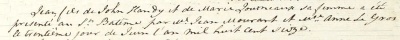 Jean fils de John Handy et de Marie Journeaux sa femme a été
présenté au St. Batême par Mr. Jean Mourant et Mse. Anne Le Gros
le trentième jour de Juin l'an mil huit cent seize.